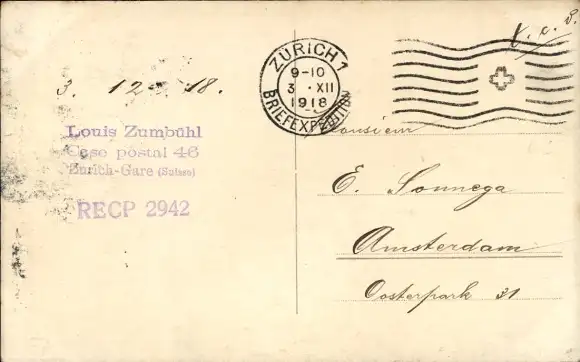 3. 12. 18.
Louis Zumbühl
Case postal 46
Zurich-Gare (Suisse)
RECP 2942
ZÜRICH 1
9-10
3. XII
1918
BRIEFEXPEDITION
Monsieur
E. Sonnega
Amsterdam
Oosterpark 31